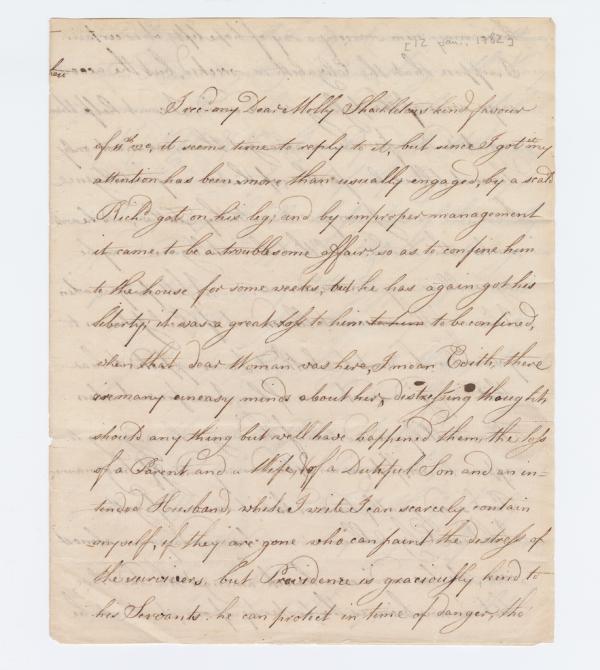 [12 Jan.. 1782]
I rec'd my Dear Molly Shackletons kind favour
of it seems time to reply to it, but since I got it my
attention has been more than usually engaged, by a scald
Rich'd got on his leg, and by improper management
it came to be a troublesome affair, so as to confine him
to the house for some weeks, but he has again got his
liberty, it was a great loss to him to him to be confined,
when that dear Woman was here, I mean Edith, there
are many uneasy minds about her, distressing thought,
should any thing but well have happened them, the loss
of a Parent and a Wife, & of a Dutiful Son and an in=
tended Husband, while I write I can scarcely contain
myself, if they are gone who can paint the distress of
the survivors, but Providence is graciously kind to
his Servants. he can protect in time of danger, tho'